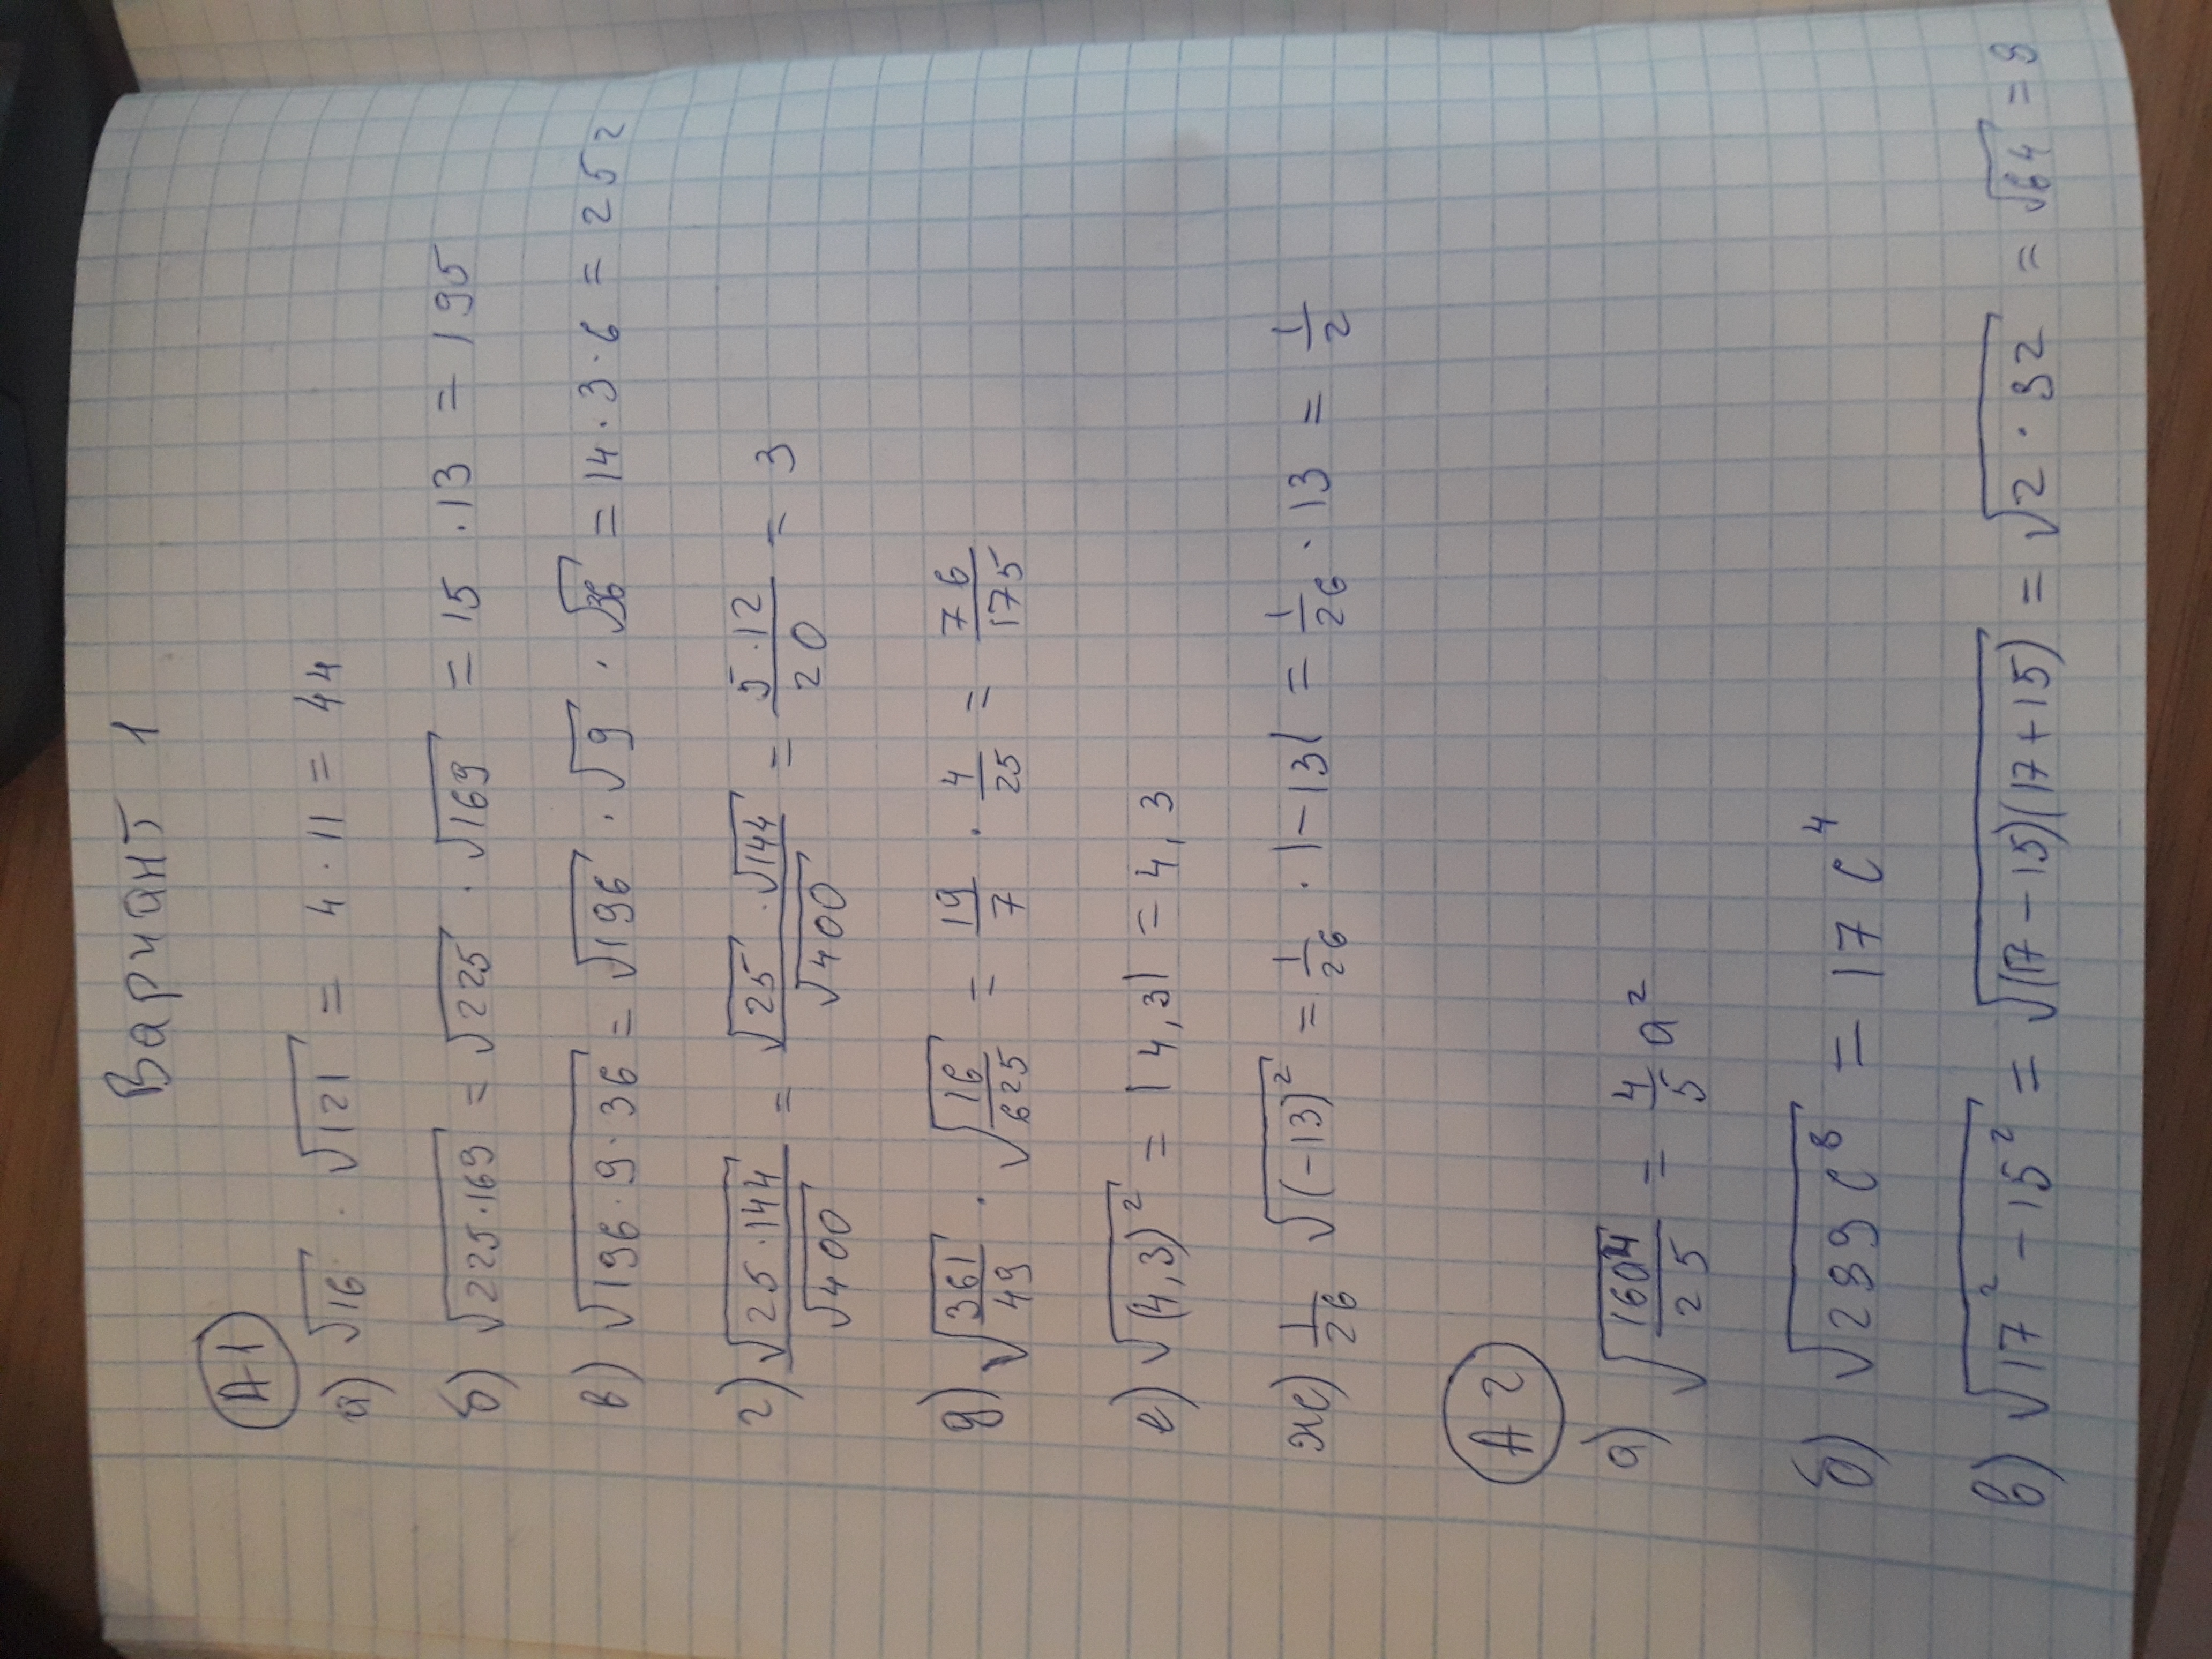 Вариант 1
А-1
а) √16 · √121 = 4 · 11 = 44
б) √(225·169) = √225 · √169 = 15 · 13 = 195
в) √(196·9·36) = √196 · √9 · √36 = 14·3·6 = 252
г) √(25·144)/√400 = (√25·√144)/√400 = (5·12)/20 = 3
д) √(361/49) · √(16/625) = 19/7 · 4/25 = 76/175
е) √(4,3)² = |4,3| = 4,3
ж) 1/26 √(-13)² = 1/26 · |-13| = 1/26 · 13 = 1/2
А-2
а) √(16a⁴/25) = 4/5 a²
б) √(289c⁸) = 17c⁴
в) √(17² - 15²) = √((17-15)(17+15)) = √(2·32) = √64 = 8